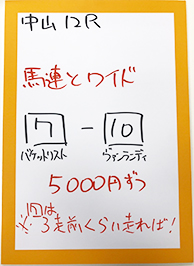 中山12R
馬連とワイド
7 - 10
バケットリスト ヴァンランディ
5000円ずつ
※10は3走前くらい走れば!